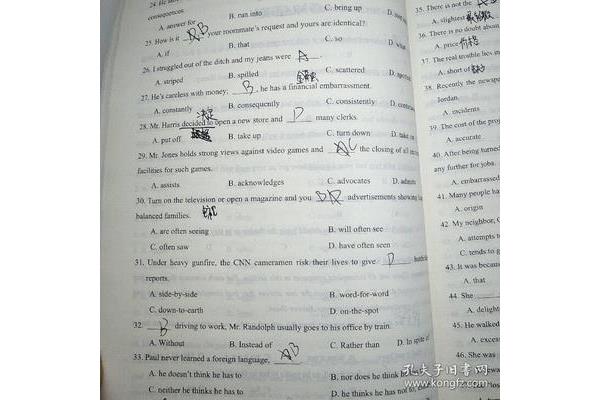 24. He
consequences.
A. answer for B. ran into C. bring up D.
25. How is it AB your roommate's request and yours are identical?
A. if B. that C. so D. what
26. I struggled out of the ditch and my jeans were A.
A. striped B. spilled C. scattered D.
27. He's careless with money; B, he has a financial embarrassment.
A. constantly B. consequently C. consistently D.
决定
28. Mr. Harris decided to open a new store and D many clerks.
A. put off B. take up C. turn down D. take on
29. Mr. Jones holds strong views against video games and AC the closing of all
facilities for such games.
A. assists B. acknowledges C. advocates D. admits
30. Turn on the television or open a magazine and you advertisements showing
balanced families.
A. are often seeing B. will often see
C. often saw D. have often seen
31. Under heavy gunfire, the CNN cameramen risk their lives to give D
reports.
A. side-by-side B. word-for-word
C. down-to-earth D. on-the-spot
32. B driving to work, Mr. Randolph usually goes to his office by train.
A. Without B. Instead of C. Rather than D. In spite of
33. Paul never learned a foreign language, AB
A. he doesn't think he has to B. nor does he think he
C. neither he thinks he has to D. he thinks he has not to
35. There is not the
A. slightest
36. There is no doubt about
A. price 价格
37. The real trouble lies in
A. short of
38. Recently the newspa
Jordan.
A. incidents
39. The cost of the proj
A. accurate
40. After being turned
any further for jobs.
A. embarrassed
41. Many people ha
A. origin
42. My neighbor,
A. attempts t
C. tends to
43. It was becau
A. that
44. She
A. delight
45. He walked
A. exces
46. She was
孔夫子旧书网
www.kongfz.com